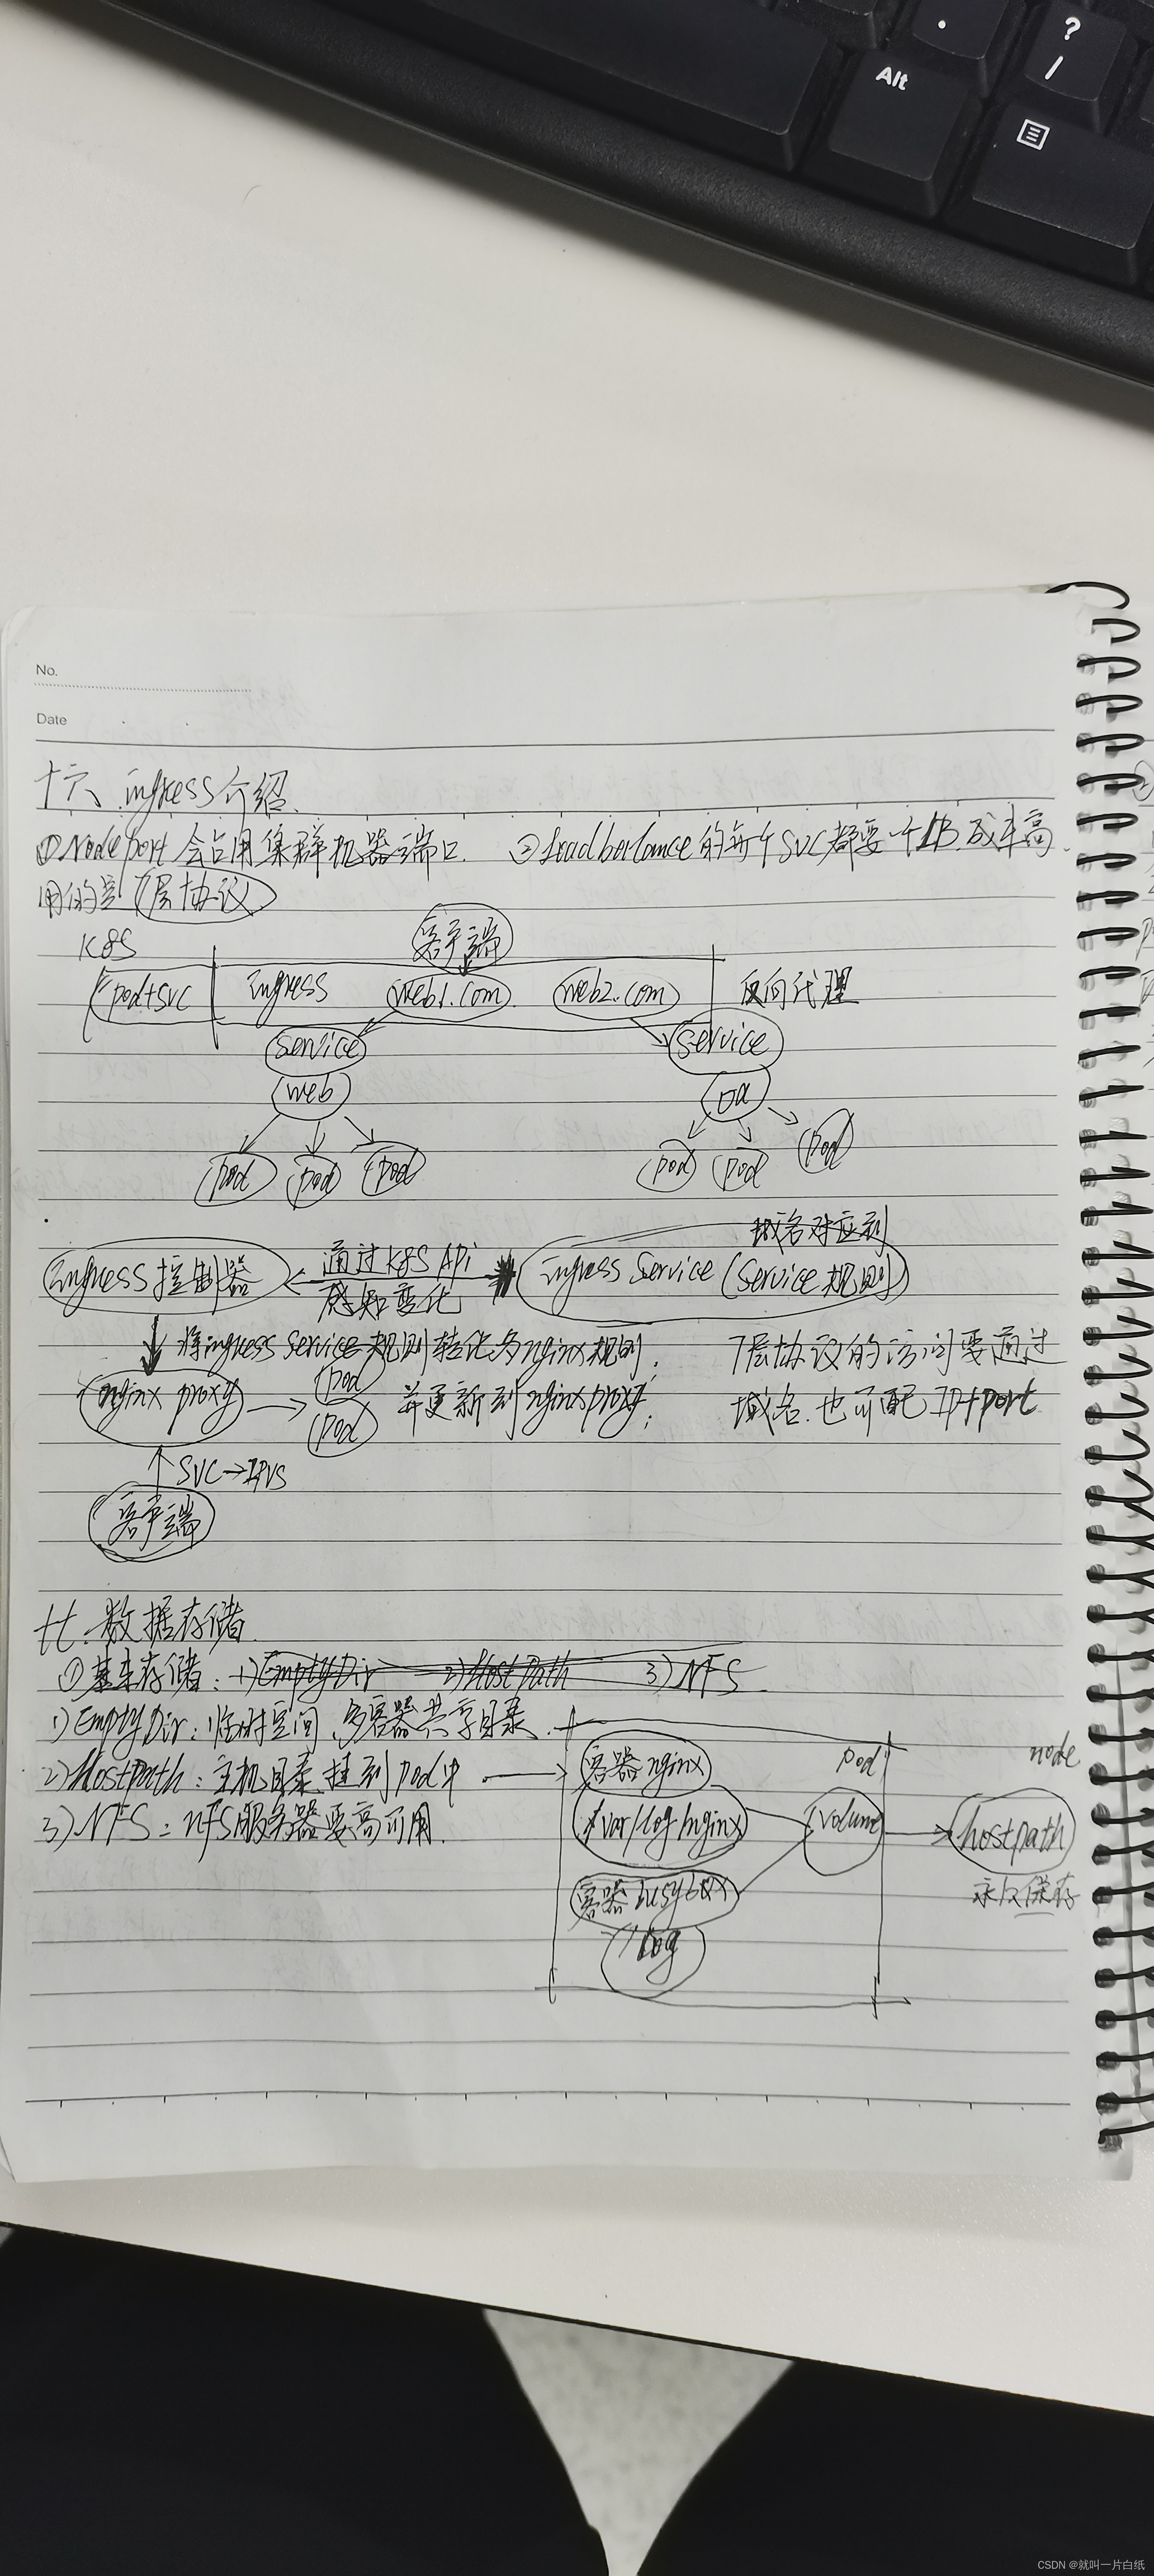 Alt
?
/
No.
Date
十六、ingress介绍.
①Nodeport 会占用集群机器端口. ②loadbarlance的每个SVC都要一个LB.成本高.
用的是7层协议
K8S
客户端
pod+svc ingress web1.com web2.com 反向代理
service service
web oa
pod pod pod pod pod pod
域名对应到
ingress 控制器 通过K8S Api ingress Service (Service规则)
感知变化
将ingress Service规则转化为nginx规则, 7层协议的访问要通过
nginx proxy pod 并更新到nginx proxy; 域名.也可配 IP+port
pod
SVC→IPVS
客户端
十七.数据存储.
①基本存储: 1)EmptyDir 2)HostPath 3)NFS
1)EmptyDir: 临时空间、多容器共享目录.
2)Hostpath: 主机目录挂到pod中 容器nginx pod node
3)NFS: nfs服务器要高可用. /var/log/nginx volume hostpath
容器busybox 永久保存
/log
CSDN @就叫一片白纸